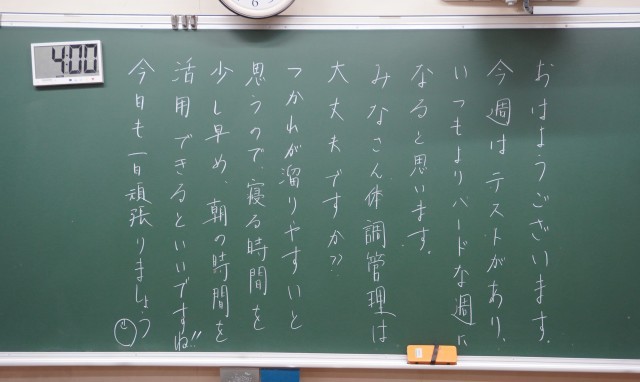 おはようございます。
今週はテストがあり、
いつもよりハードな週に
なると思います。
みなさん体調管理は
大丈夫ですか??
つかれが溜りやすいと
思うので、寝る時間を
少し早め、朝の時間を
活用できるといいですね!!
今日も一日頑張りましょう
4:00
6